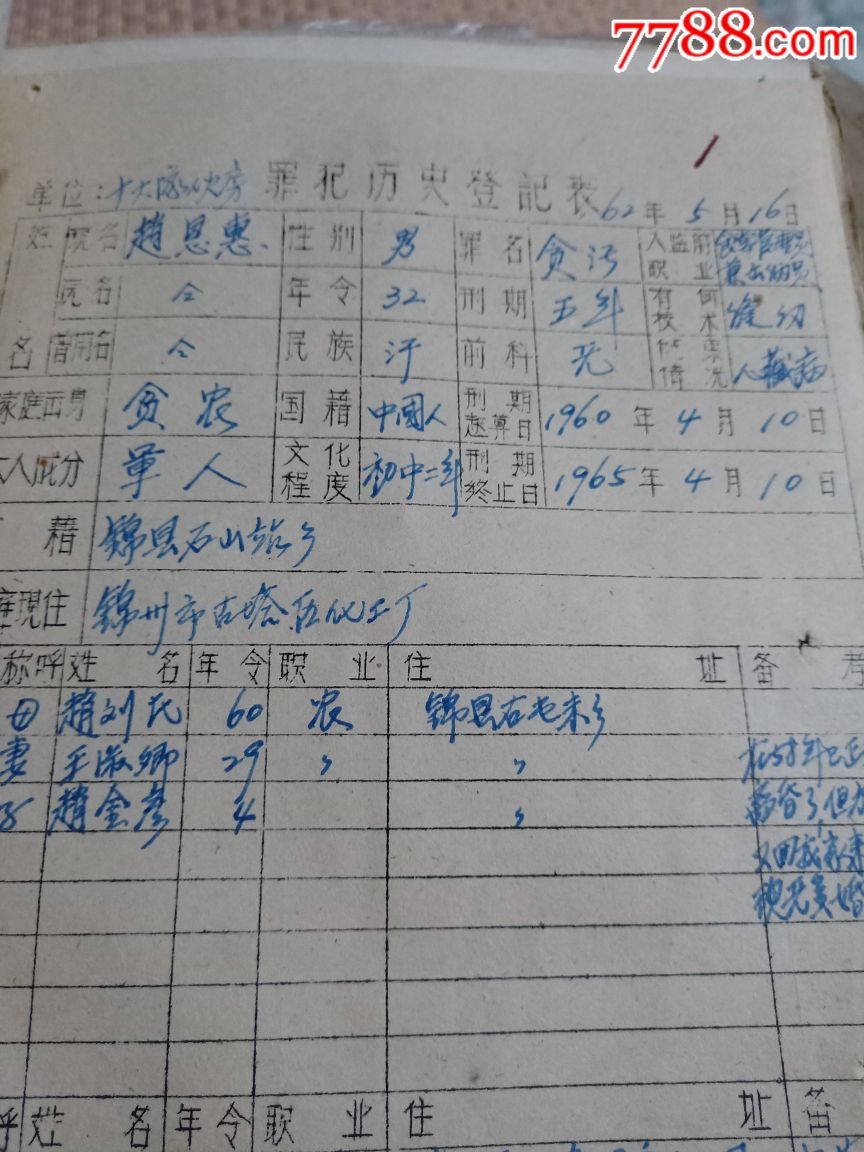 7788.com
1
单位：十大队伙房 罪犯历史登記表 62年5月16日
姓 现名 趙恩惠 性别 男 罪名 贪污 入监前职业
元名 仝 年令 32 刑期 五年 有何技术
名 借用名 仝 民族 汗 前科 无 情况
家庭出身 贫农 国籍 中國人 刑期起算日 1960年4月10日
本人成分 軍人 文化程度 初中二年 刑期终止日 1965年4月10日
籍 錦县石山站乡
庭現住 錦州市古塔 化工厂
称呼 姓名 年令 职业 住址 备考
母 趙刘氏 60 农 錦县
妻 王淑卿 29 〃 〃
子 趙金彦 4 〃
呼 姓名 年令 职业 住址 备